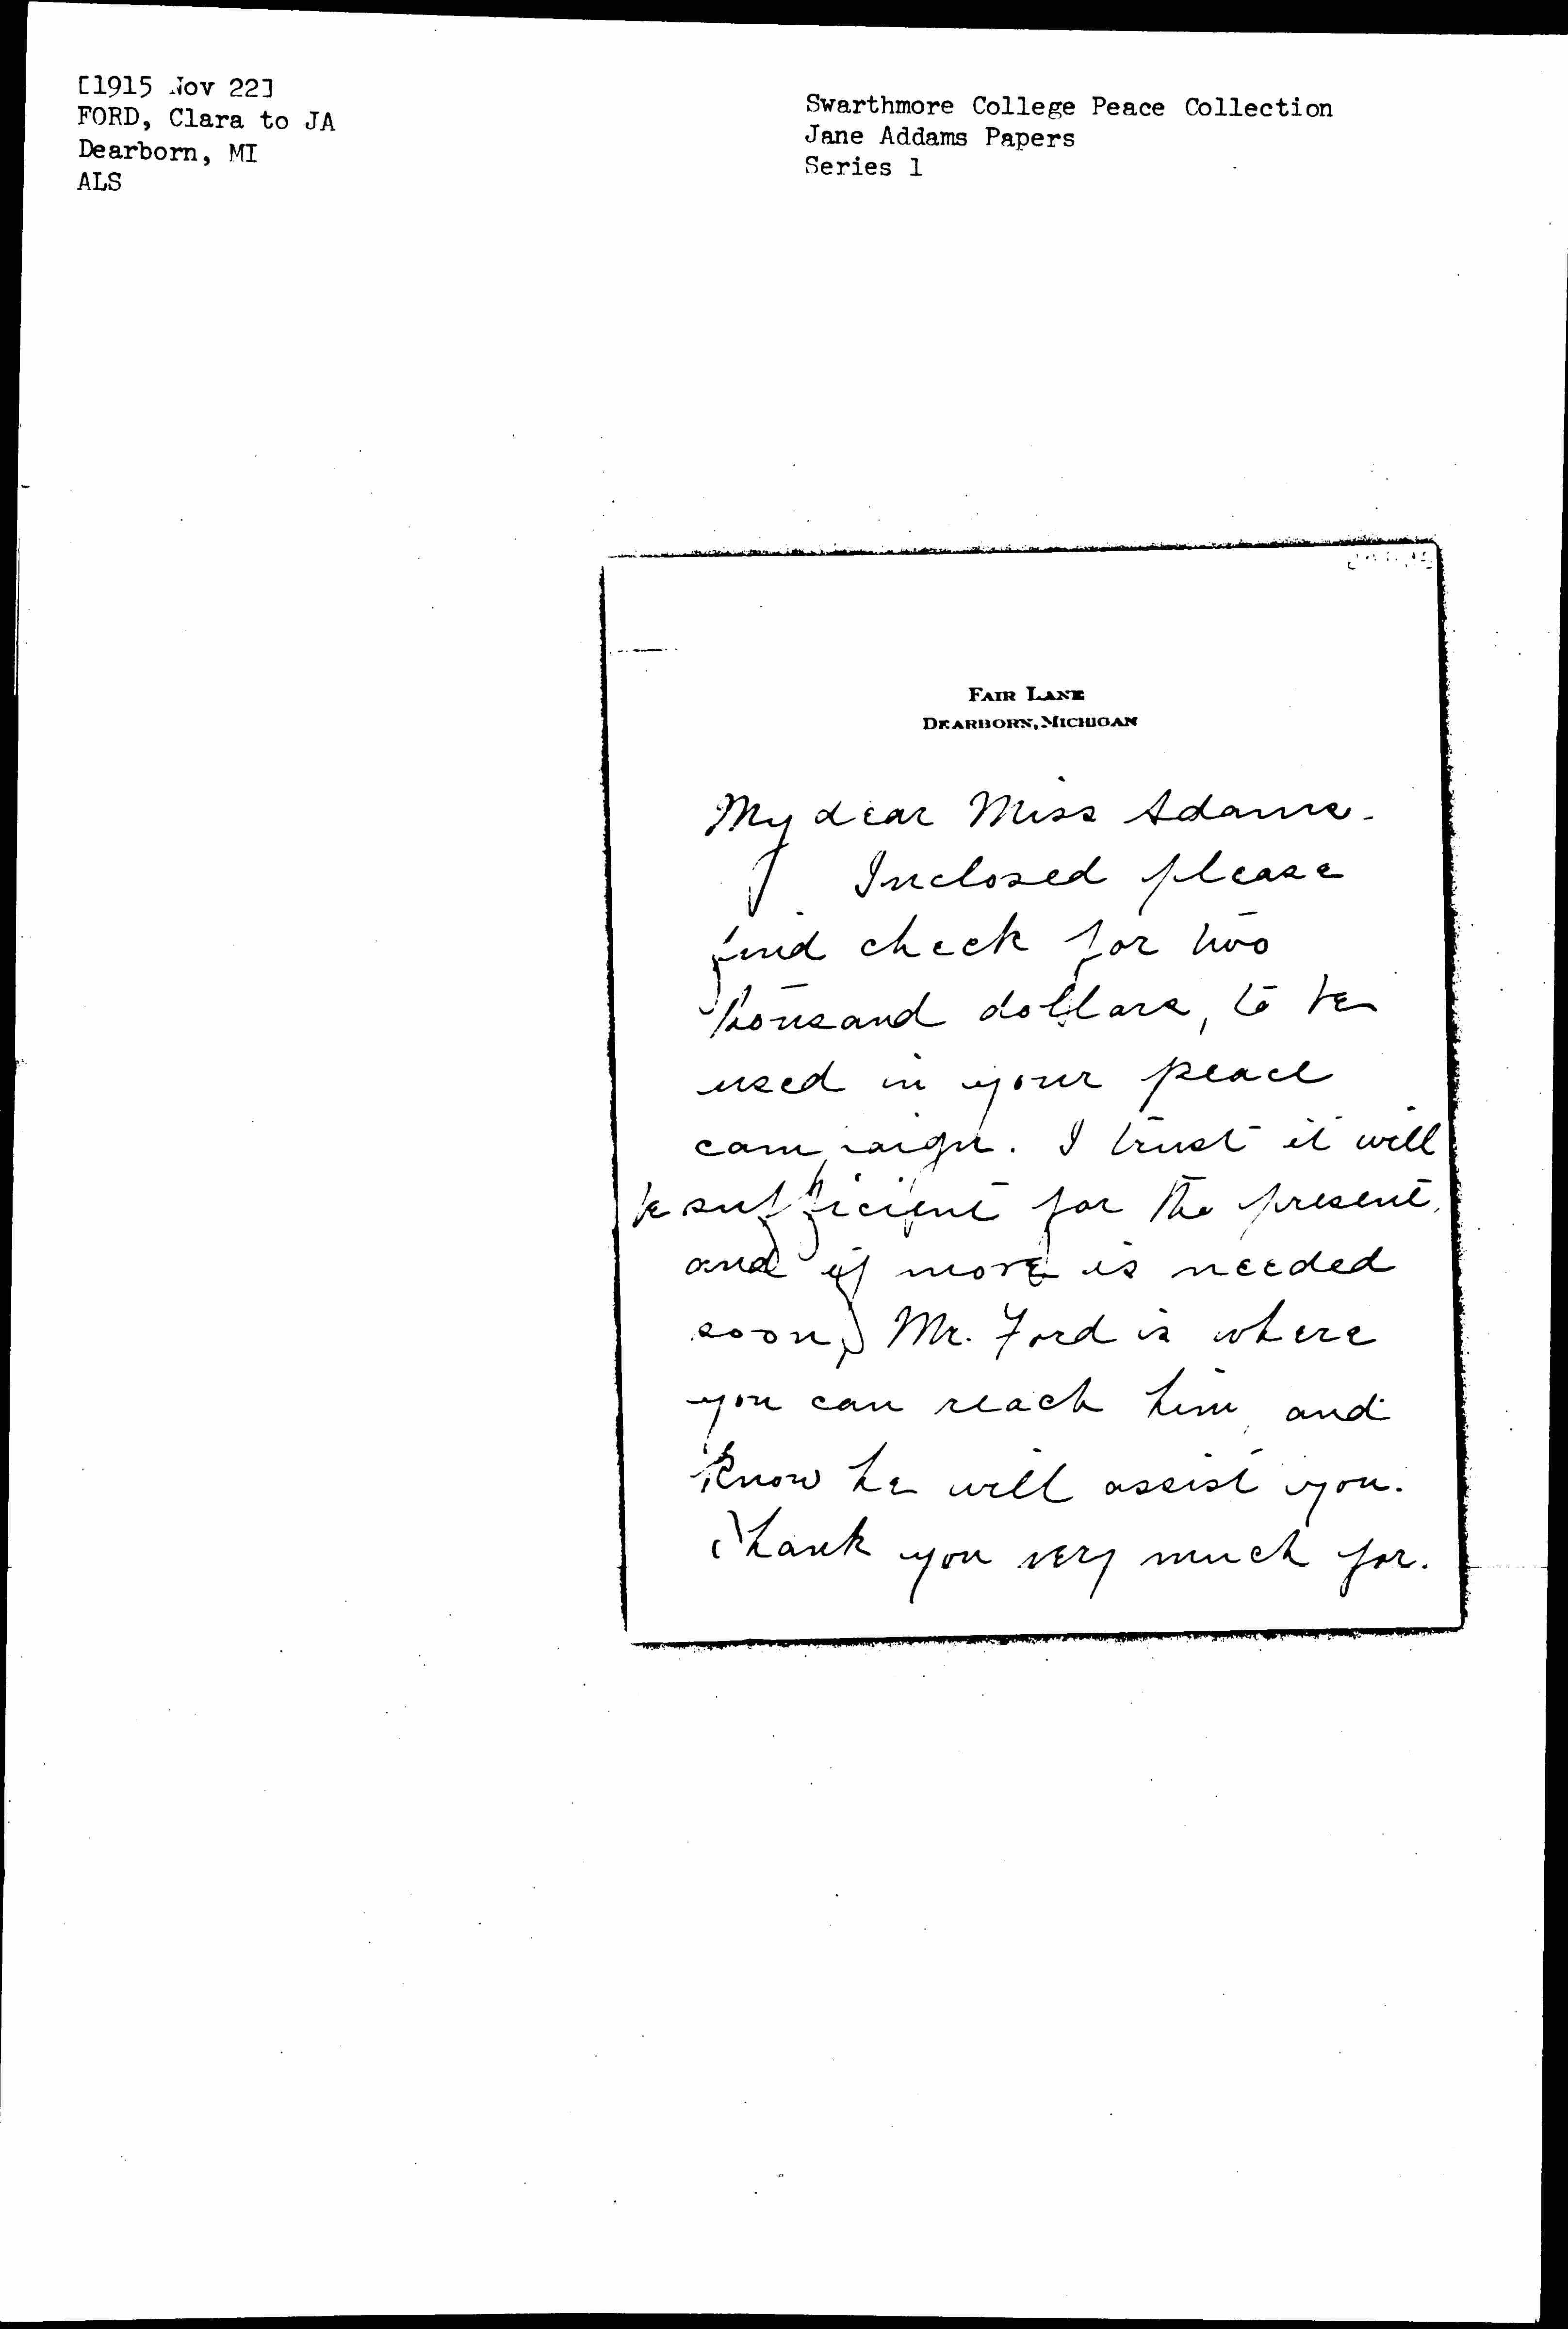 [1915 Nov 22]
FORD, Clara to JA
Dearborn, MI
ALS
Swarthmore College Peace Collection
Jane Addams Papers
Series 1
FAIR LANE
DEARBORN, MICHIGAN
My dear Miss Adams.
Inclosed please
find check for two
thousand dollars, to be
used in your peace
campaign. I trust it will
be sufficient for the present,
and if more is needed
soon, Mr. Ford is where
you can reach him, and
know he will assist you.
Thank you very much for.